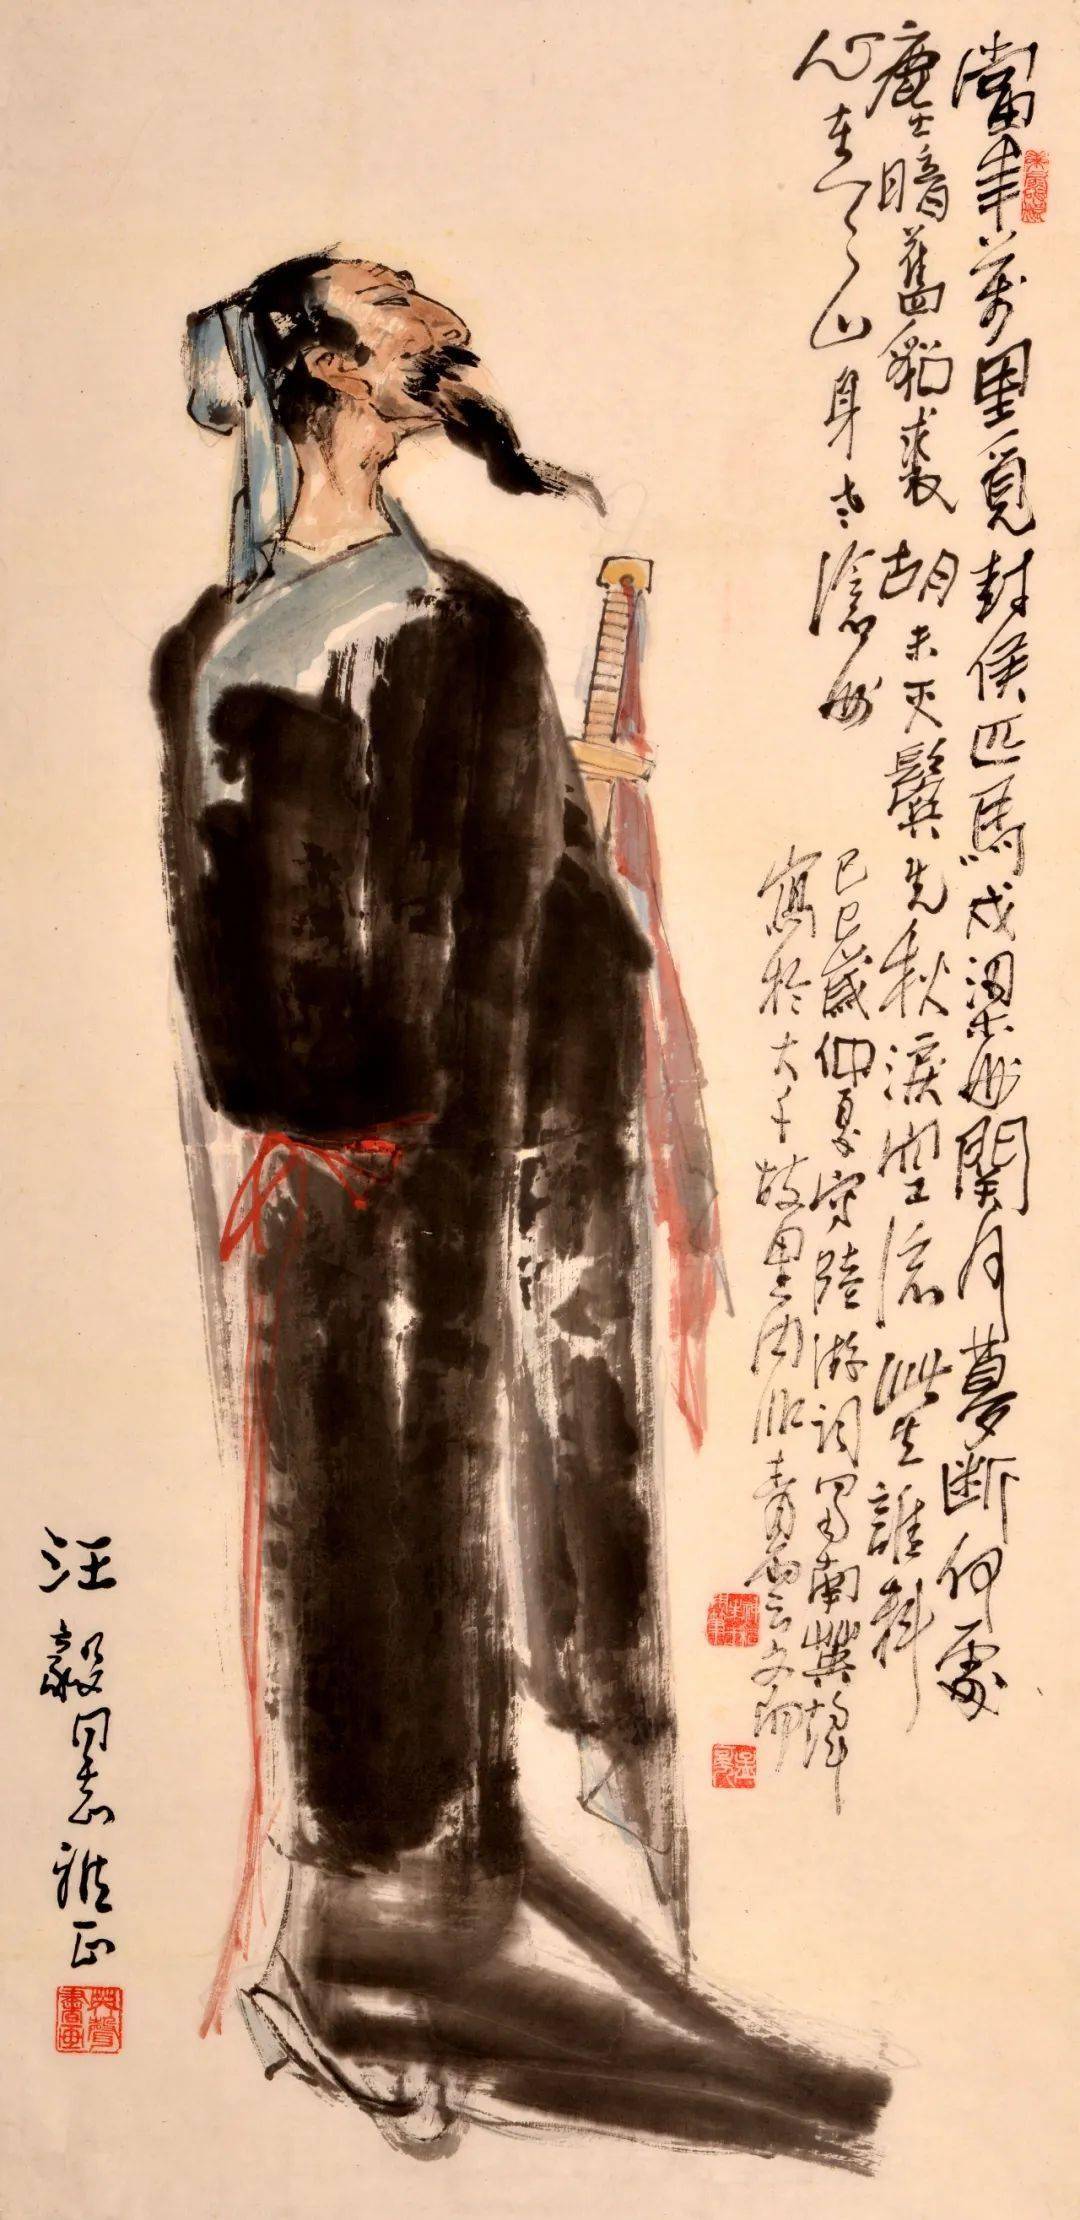 當年萬里覓封侯匹馬戍梁州關月夢斷何處
塵暗舊貂裘胡未灭鬢先秋淚空流此生誰料
心在天山身老滄州
己巳歲仲夏寫陸游詞蜀南黄
寫於大千故里内江青雲
汪毅同志雅正